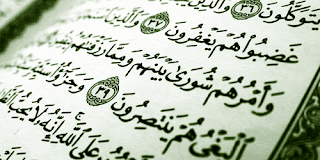 يَتَوَكَّلُونَ ٣٦ وَالَّذِينَ
غَضِبُوا هُمْ يَغْفِرُونَ ٣٧ وَالَّذِينَ
وَأَمْرُهُمْ شُورَىٰ بَيْنَهُمْ وَمِمَّا رَزَقْنَاهُمْ
الْبَغْيُ هُمْ يَنتَصِرُونَ ٣٩ وَجَزَاءُ
عَلَى اللَّهِ إِنَّهُ لَا يُحِبُّ